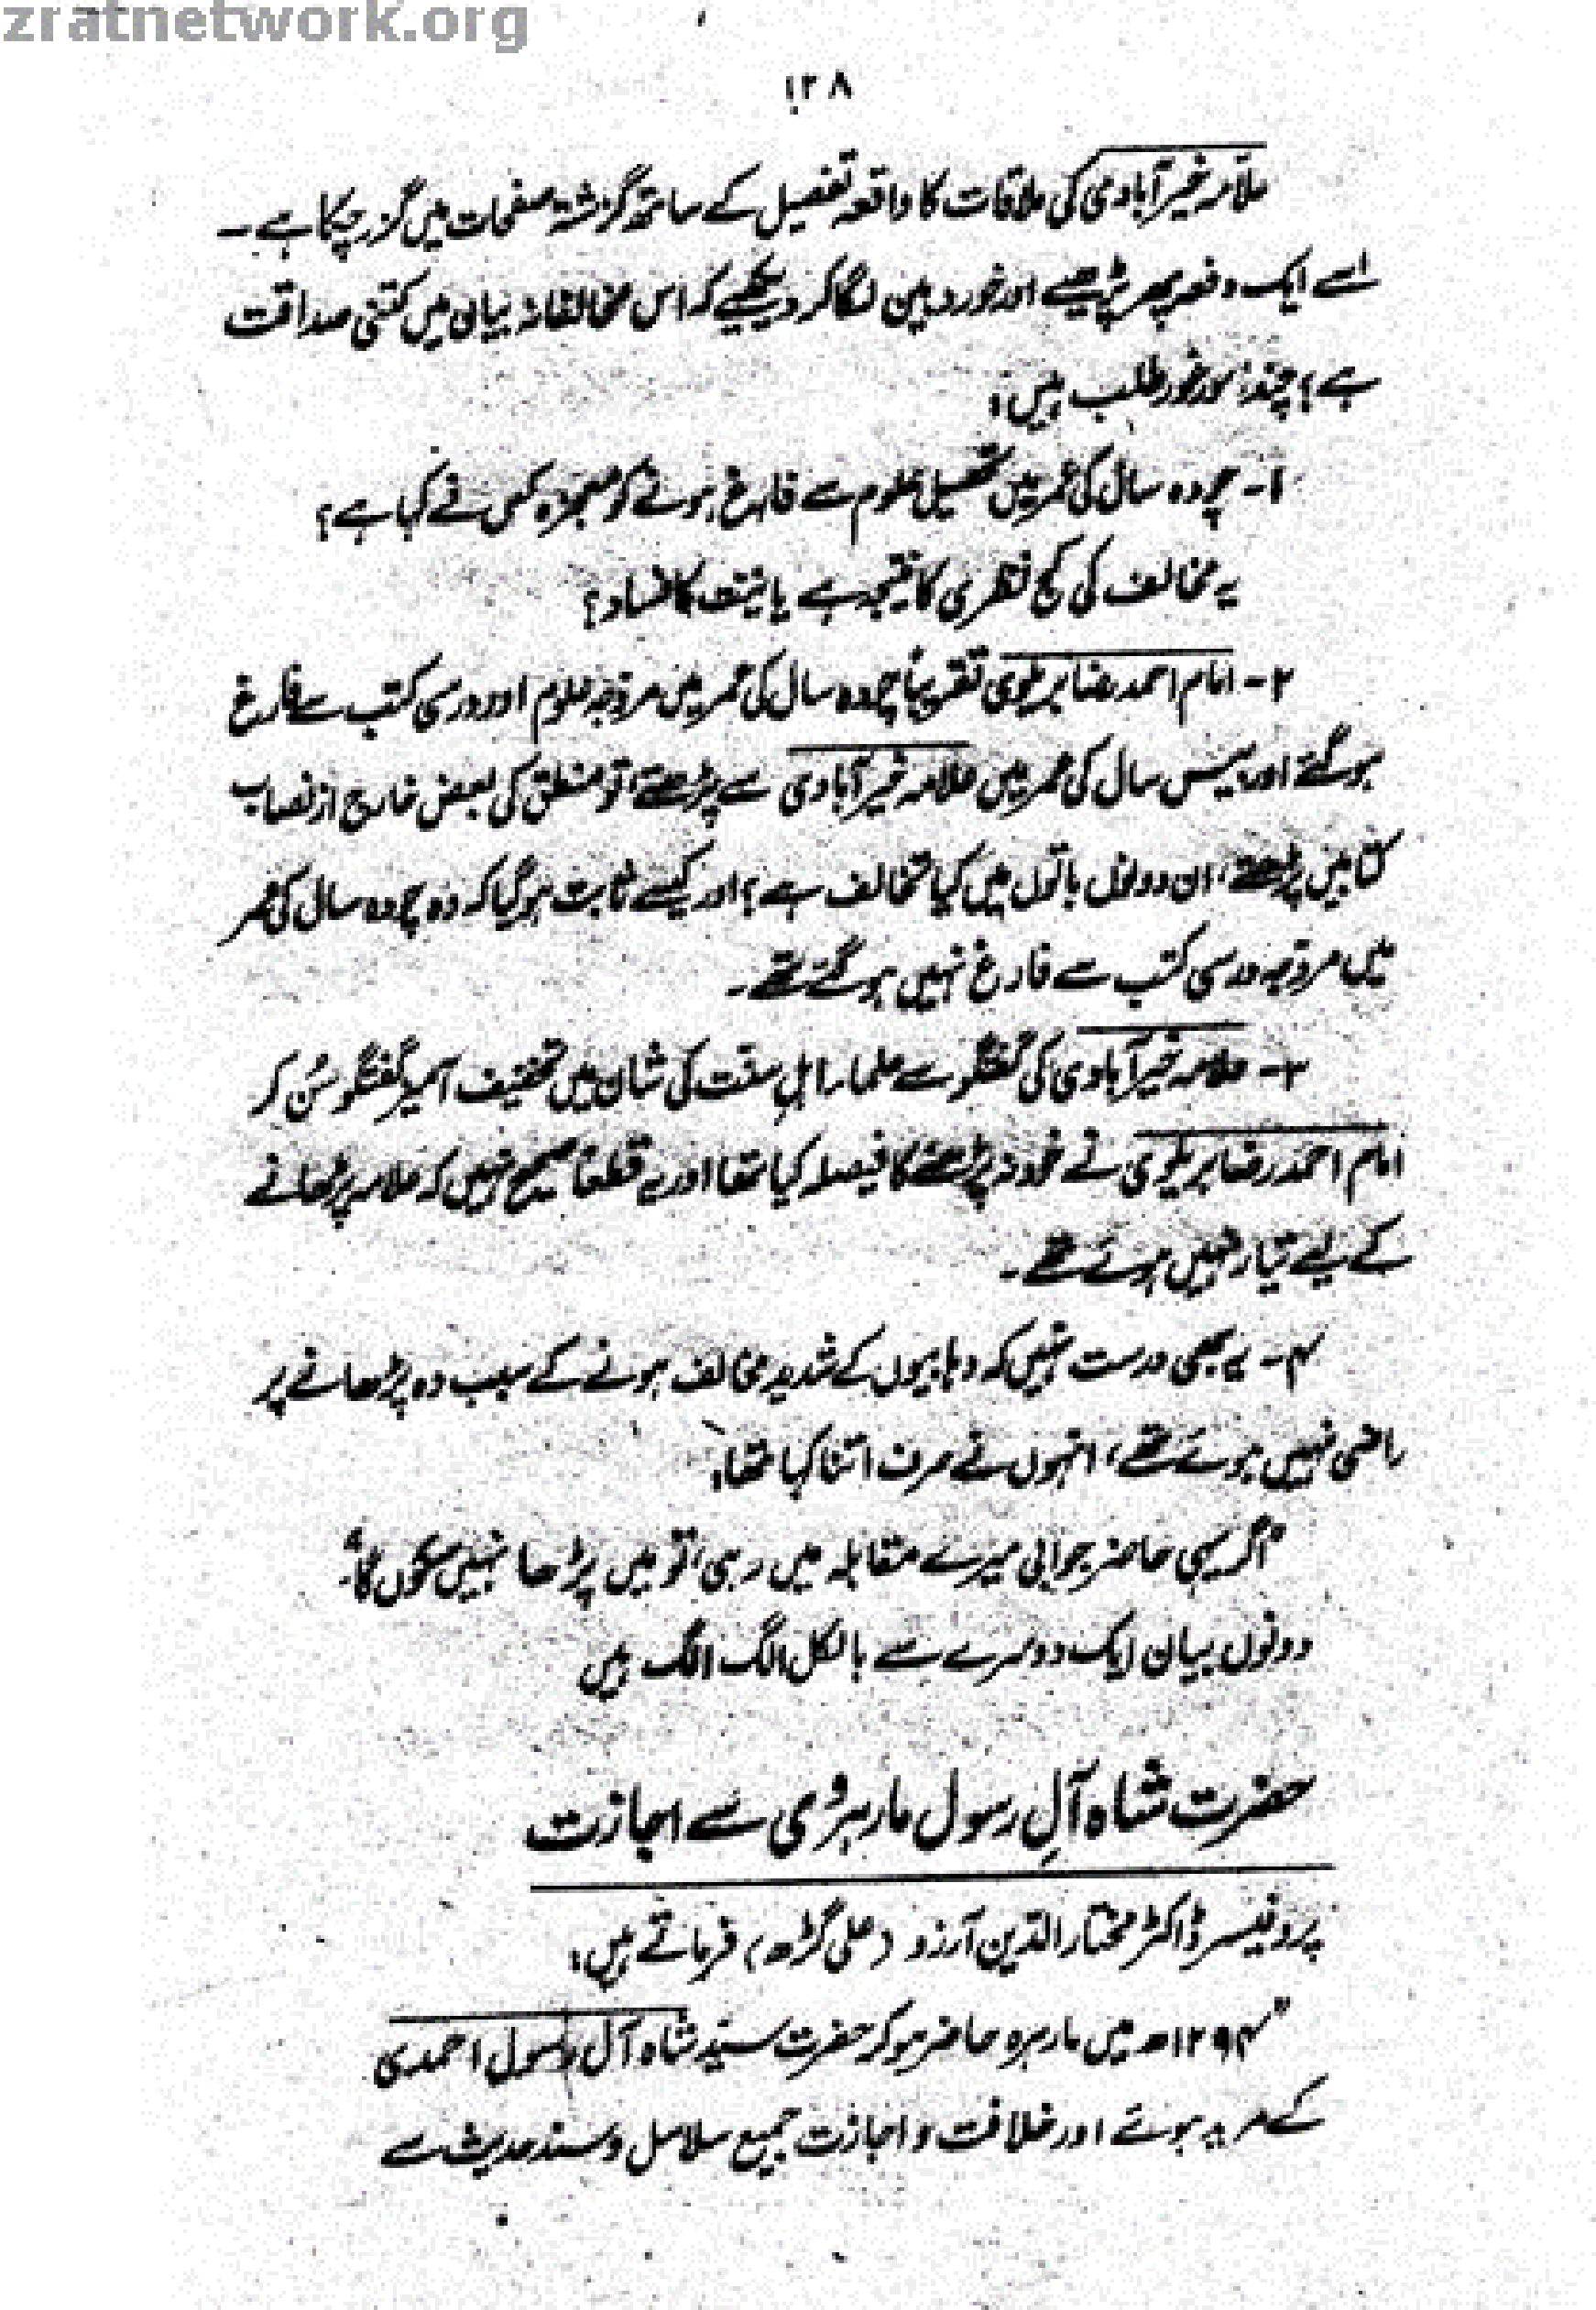 zratnetwork.org
۱۲۸
علامہ خیرآبادی کی ملاقات کا واقعہ تفصیل کے ساتھ گزشتہ صفحات میں گزر چکا ہے ۔
اسے ایک دفعہ پھر پڑھیے اور خوردبین لگا کر دیکھیے کہ اس مخالفانہ بیان میں کتنی صداقت
ہے؟ چند امور غور طلب ہیں:
۱۔ چودہ سال کی عمر میں تحصیل علوم سے فارغ ہونے کو معجزہ کس نے کہا ہے؟
یہ مخالف کی کج نظری کا نتیجہ ہے یا نیت کا فساد؟
۲۔ امام احمد رضا بریلوی تقریباً چودہ سال کی عمر میں مروجہ علوم اور درسی کتب سے فارغ
ہوگئے اور بیس سال کی عمر میں علامہ خیرآبادی سے پڑھتے، تو منطق کی بعض خارج از نصاب
کتابیں پڑھتے، ان دونوں باتوں میں کیا تخالف ہے؟ اور کیسے ثابت ہوگیا کہ وہ چودہ سال کی عمر
میں مروّجہ درسی کتب سے فارغ نہیں ہوگئے تھے ۔
۳۔ علامہ خیرآبادی کی گفتگو سے علماء اہلِ سنت کی شان میں تخفیف آمیز گفتگو سُن کر
امام احمد رضا بریلوی نے خود نہ پڑھنے کا فیصلہ کیا تھا اور یہ قطعاً صحیح نہیں کہ علامہ پڑھانے
کے لیے تیار نہیں ہوئے تھے ۔
۴۔ یہ بھی درست نہیں کہ وہابیوں کے شدید مخالف ہونے کے سبب وہ پڑھانے پر
راضی نہیں ہوئے تھے، انہوں نے صرف اتنا کہا تھا:
"اگر یہی حاضر جوابی میرے مقابلہ میں رہی، تو میں پڑھا نہیں سکوں گا"۔
دونوں بیان ایک دوسرے سے بالکل الگ الگ ہیں
حضرت شاہ آلِ رسول مارہروی سے اجازت
پروفیسر ڈاکٹر مختار الدّین آرزو (علی گڑھ) فرماتے ہیں:
"۱۲۹۴ھ میں مارہرہ حاضر ہوکر حضرت سیّد شاہ آل رسول احمدی
کے مرید ہوئے اور خلافت و اجازت جمیع سلاسل و سند حدیث سے